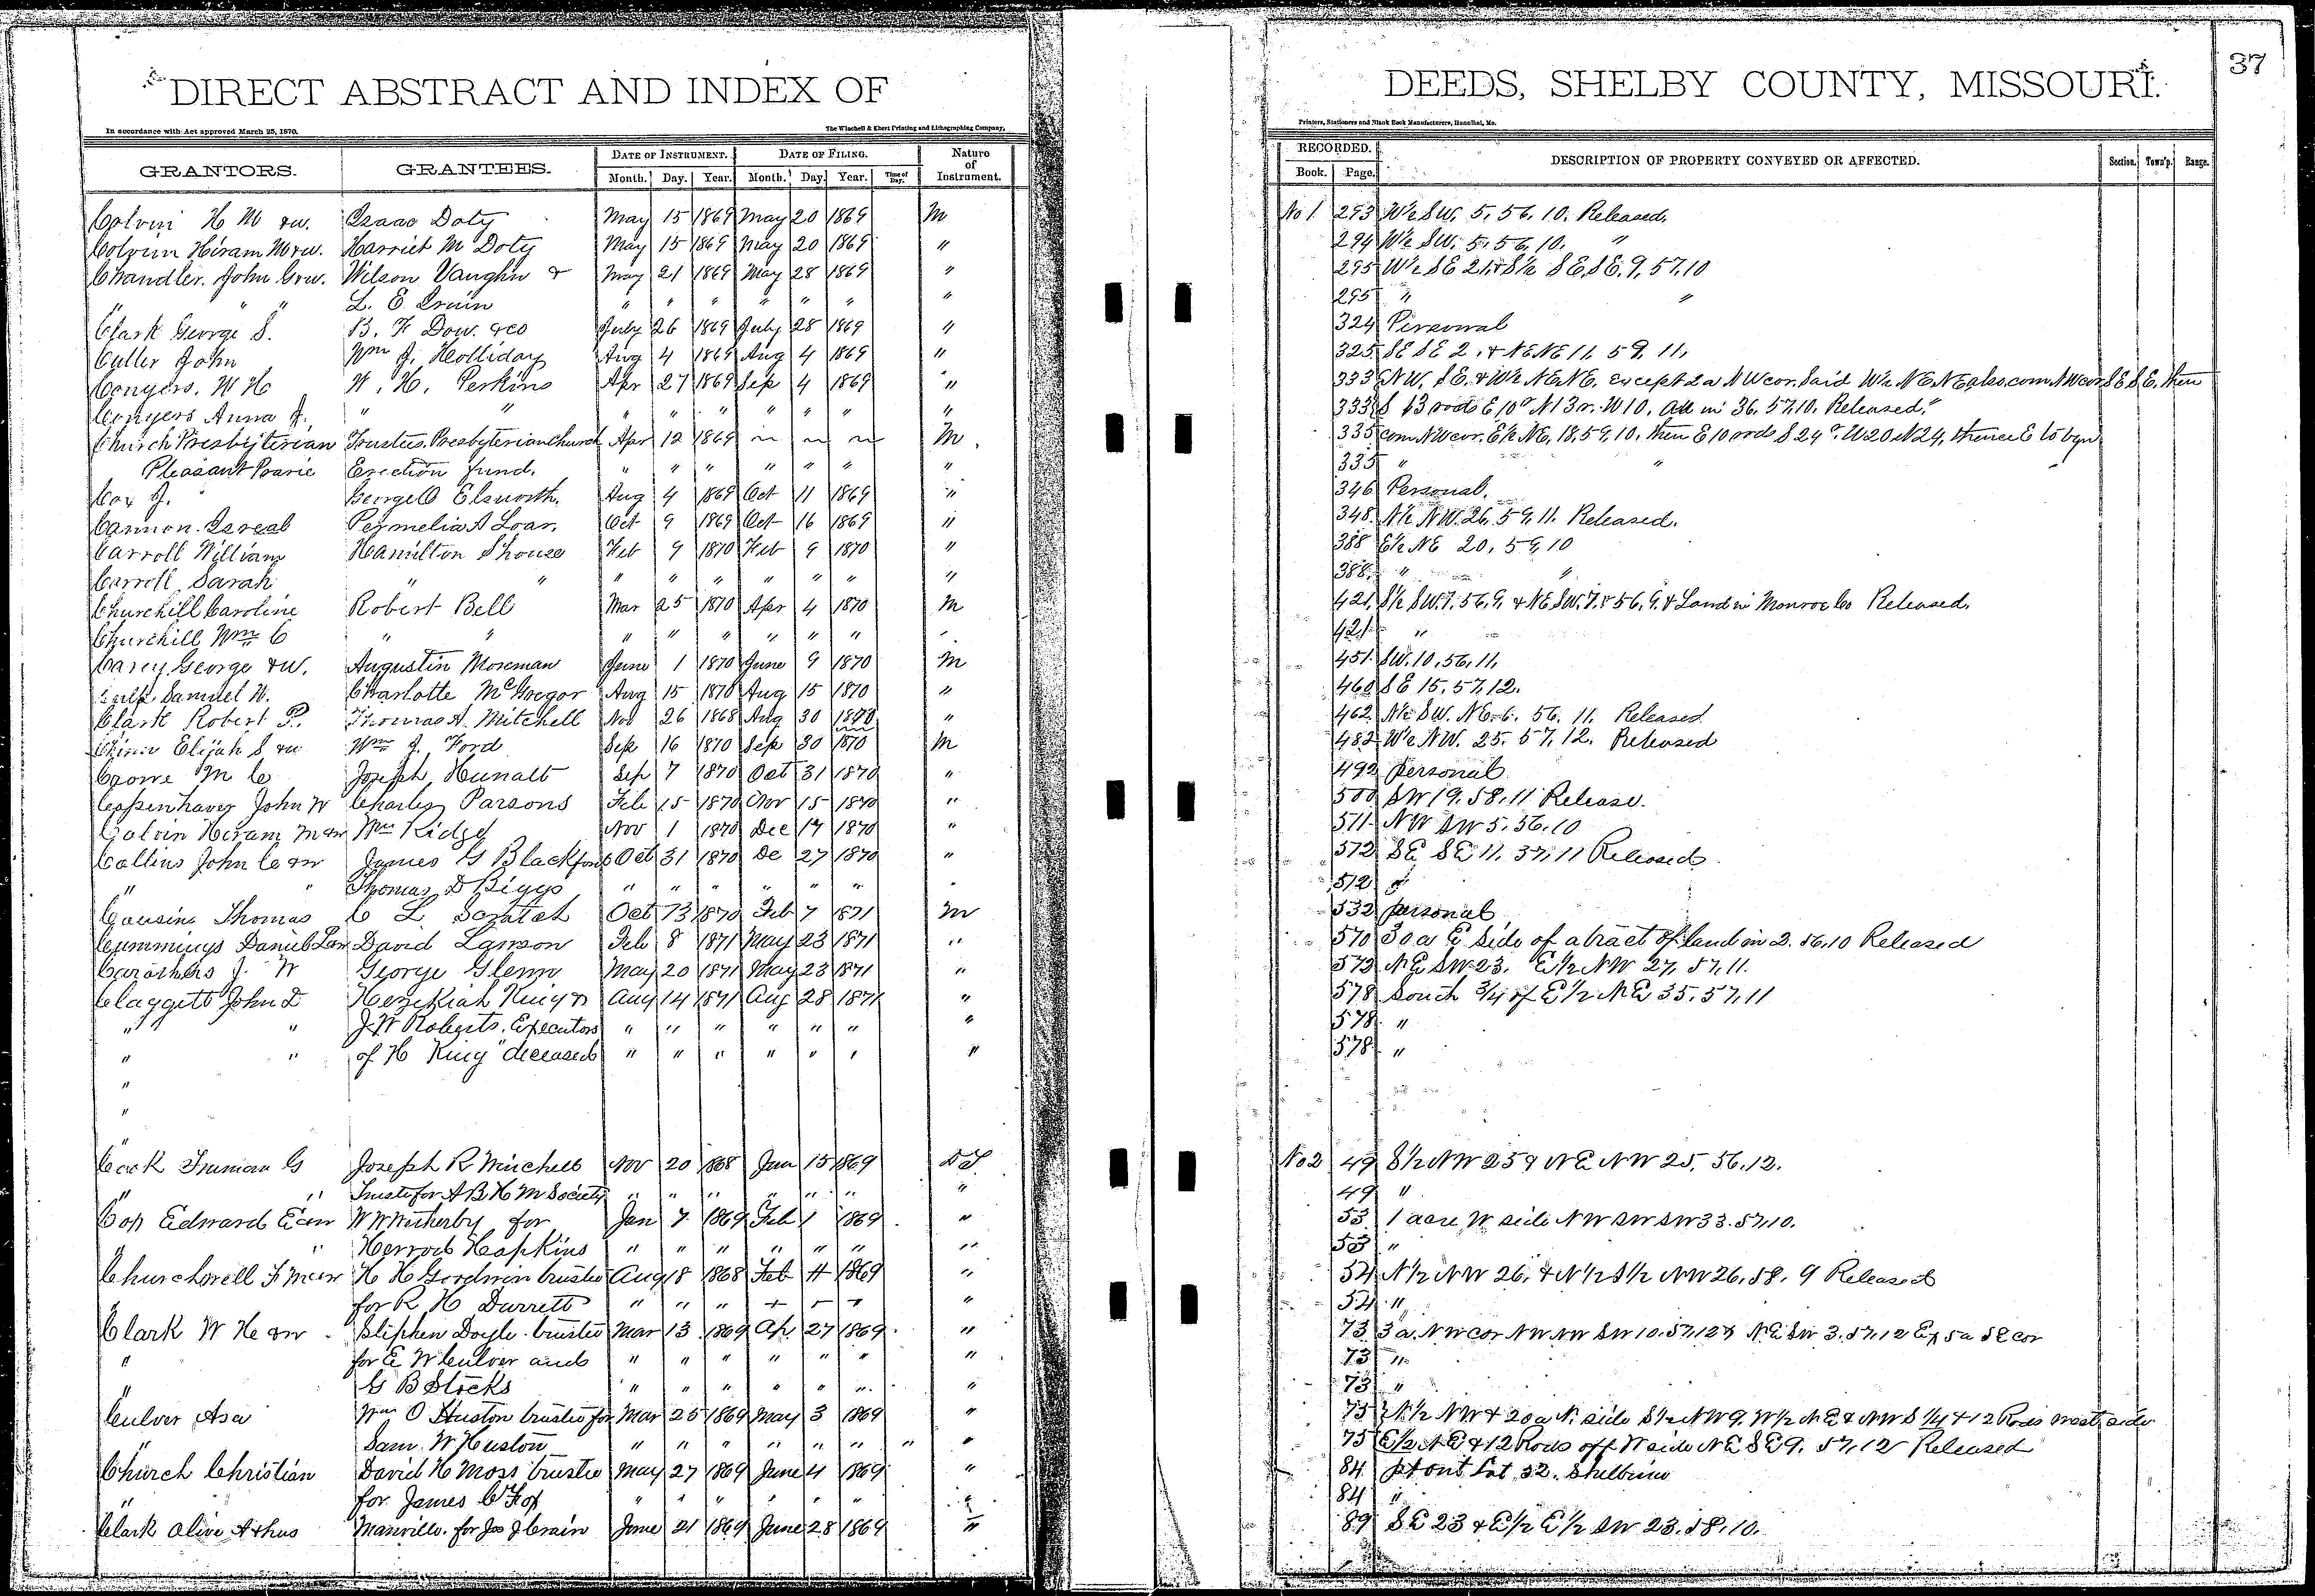 37
DIRECT ABSTRACT AND INDEX OF DEEDS, SHELBY COUNTY, MISSOURI.
In accordance with Act approved March 25, 1870. The Winchell & Ebert Printing and Lithographing Company, Printers, Stationers and Blank Book Manufacturers, Hannibal, Mo.
GRANTORS. GRANTEES. DATE OF INSTRUMENT. DATE OF FILING. Nature of Instrument. RECORDED. DESCRIPTION OF PROPERTY CONVEYED OR AFFECTED. Section. Town'p. Range.
Month. Day. Year. Month. Day. Year. Time of Day. Book. Page.
Colvin H M &w. Isaac Doty May 15 1869 May 20 1869 M No 1 293 W½ SW. 5, 56, 10. Released.
Colvin Hiram M &w. Harriet M Doty May 15 1869 May 20 1869 " 294 W½ SW. 5, 56, 10. "
Chandler. John G &w. Wilson Vaughn & May 21 1869 May 28 1869 " 295 W½ SE 21, & S½ SE, SE, 9, 57, 10
" " L. E. " " " " " " " 295 " "
Clark George S. B. F Dow. &co July 26 1869 July 28 1869 " 324 Personal
Culler John Wm J. Holliday Aug 4 1869 Aug 4 1869 " 325 SE SE 2, & NE NE 11, 59, 11,
Conyers. W H W. H. Perkins Apr 27 1869 Sep 4 1869 " 333 NW. SE. & W½ NE, NE. except 2a NW cor. said W½ NE, NE also. com NW cor SE SE, then
Conyers Anna J. " " " " " " " " " 333 S 13 rods E 10" N 13 r. W 10, all in 36, 57, 10. Released.
Church Presbyterian Trustees. Presbyterian Church Apr 12 1869 M. 335 com NW cor. E½ NE, 18, 59, 10, then E 10 rods S 24 r. W 20 N 24, thence E to bgn
Pleasant Prarie Erection fund. " " " " " " " 335 " "
Cox J. George O Elsworth. Aug 4 1869 Oct 11 1869 " 346 Personal.
Cannon. Isreal Permelia A Loar. Oct 9 1869 Oct 16 1869 " 348. N½ NW. 26, 59, 11. Released.
Carroll William Hamilton Shouse Feb 9 1870 Feb 9 1870 " 388 E½ NE 20, 59, 10
Carroll Sarah " " " " " " " " " 388. " "
Churchill Caroline Robert Bell Mar 25 1870 Apr 4 1870 M 421. S½ SW. 7, 56, 9, & NE SW. 7, 56, 9, & Land in Monroe Co Released.
Churchill Wm C " " " " " " " " " 421 "
Carey George &W. Augustin Moreman June 1 1870 June 9 1870 M 451. SW. 10, 56, 11,
Culp. Samuel W. Charlotte McGregor Aug 15 1870 Aug 15 1870 " 460 SE 15, 57, 12.
Clark Robert P. Thomas A. Mitchell Nov 26 1868 Aug 30 1870 " 462. N½ SW. NE. 6. 56. 11. Released
Elijah S &w Wm J. Ford Sep 16 1870 Sep 30 1870 M 482 W½ NW. 25. 57, 12. Released
Crowe M C Joseph Hunalt Sep 7 1870 Oct 31 1870 " 492 personal
Copenhaver John W Charles Parsons Feb 15 1870 Nov 15 1870 " 500 SW 19, 58, 11 Release.
Colvin Hiram M &w Wm Ridge Nov 1 1870 Dec 17 1870 " 511 NW SW 5, 56, 10
Collins John C &w James G Blackford Oct 31 1870 De 27 1870 " 512 SE SE 11, 57, 11 Released
" " Thomas D Biggs " " " " " " " 512
Cousins Thomas C L Scratch Oct 13 1870 Feb 7 1871 M 532 personal
Cummings Daniel L &w David Lawson Feb 8 1871 May 23 1871 " 570 30 a E side of a tract of land in 2. 56, 10 Released
Carothers J. W George Glenn May 20 1871 May 23 1871 " 573 NE SW 23, E½ NW 27, 57, 11.
Claggett John T Hezekiah King & Aug 14 1871 Aug 28 1871 " 578 South ¾ of E½ NE 35, 57, 11
" " J. W Roberts. Executors " " " " " " " 578 "
" " of H King deceased " " " " " " " 578 "
"
"
"
Cook Truman G Joseph R Winchell Nov 20 1868 Jan 15 1869 D T. No 2 49 S½ NW 25 & NE NW 25, 56, 12.
" " Truste for A B H M Society " " " " " " " 49 "
Cox Edward E &w W W Witherby for Jan 7 1869 Feb 1 1869 " 53 1 acre W side NW SW SW 33. 57, 10.
" " Herrod Hopkins " " " " " " " 53 "
Churchwell F M &w H H Goodwin trustee Aug 18 1868 Feb 4 1869 " 54 N½ NW 26, & N½ S½ NW 26, 58, 9 Released
" for R H Durrett " " " " 54 "
Clark W H &w Stephen Doyle trustee Mar 13 1869 Ap. 27 1869 " 73 3 a. NW cor NW NW SW 10, 57, 12 & NE SW 3. 57, 12 Ex 5a SE cor
" for E W Culver and " " " " " " " 73 "
" G B Stocks " " " " " " " 73 "
Culver Asa Wm O Huston trustee for Mar 25 1869 May 3 1869 " 75 N½ NW & 20 a N. side S½ NW 9. W½ NE & NW S ¼ & 12 Rods west side
" Sam. W Huston " " " " " " " " 75 E½ NE & 12 Rods off W side NE SE 9, 57, 12 Released
Church Christian David H Moss trustee May 27 1869 June 4 1869 " 84 pt out Lot 32. Shelbina
" for James C Fox " " " " " " " 84 "
Clark Olive A & hus for Jas J Crain June 21 1869 June 28 1869 " 89 SE 23 & E½ E½ SW 23. 58, 10.